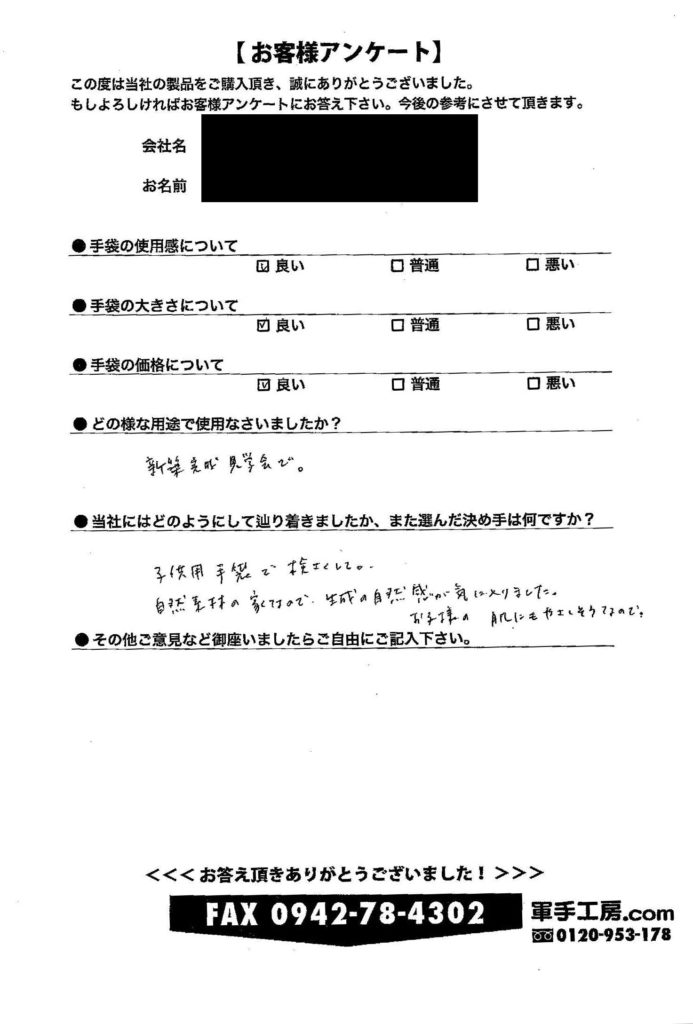 【お客様アンケート】
この度は当社の製品をご購入頂き、誠にありがとうございました。
もしよろしければお客様アンケートにお答え下さい。今後の参考にさせて頂きます。
会社名
お名前
●手袋の使用感について
☑良い □普通 □悪い
●手袋の大きさについて
☑良い □普通 □悪い
●手袋の価格について
☑良い □普通 □悪い
●どの様な用途で使用なさいましたか？
新築完成見学会で。
●当社にはどのようにして辿り着きましたか、また選んだ決め手は何ですか？
子供用手袋で検さくして。
自然素材の家なので、生成の自然感が気に入りました。
お子様の肌にもやさしそうなので。
●その他ご意見など御座いましたらご自由にご記入下さい。
<<<お答え頂きありがとうございました！>>>
FAX 0942-78-4302
軍手工房.com
0120-953-178